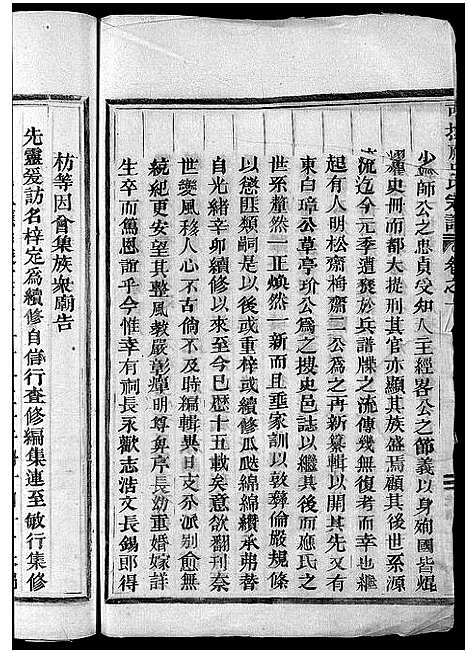 少師公之忠貞受知人主經畧公之節義以身殉國皆焜
耀史冊而都大提刑其官亦顯其族盛焉顧其後世系源
流迄今元季遭燹於兵譜牒之流傳幾無復考而幸也繼
起有人明松齋梅齋二公為之再新纂輯以開其先又有
東白璋公草亭玠公為之搜史邑誌以繼其後而應氏之
世系釐然一正煥然一新而且垂家訓以敦彝倫嚴規條
以懲匪類嗣是以後或重梓或續修瓜瓞綿綿纘承弗替
自光緒辛卯續修以至今已歷十五載矣意欲翻刊奈
世變風移人心不古倘不及時編輯異日支分派別愈無
統紀更安望其整風教嚴彰癉明尊卑序長幼重婚嫁詳
生卒而篤恩誼乎今惟幸有祠長永歡志浩文長錫郎得
枋等因會集族衆廟告
先靈爰訪名梓定為續修自信行查修編集連至敏行集修